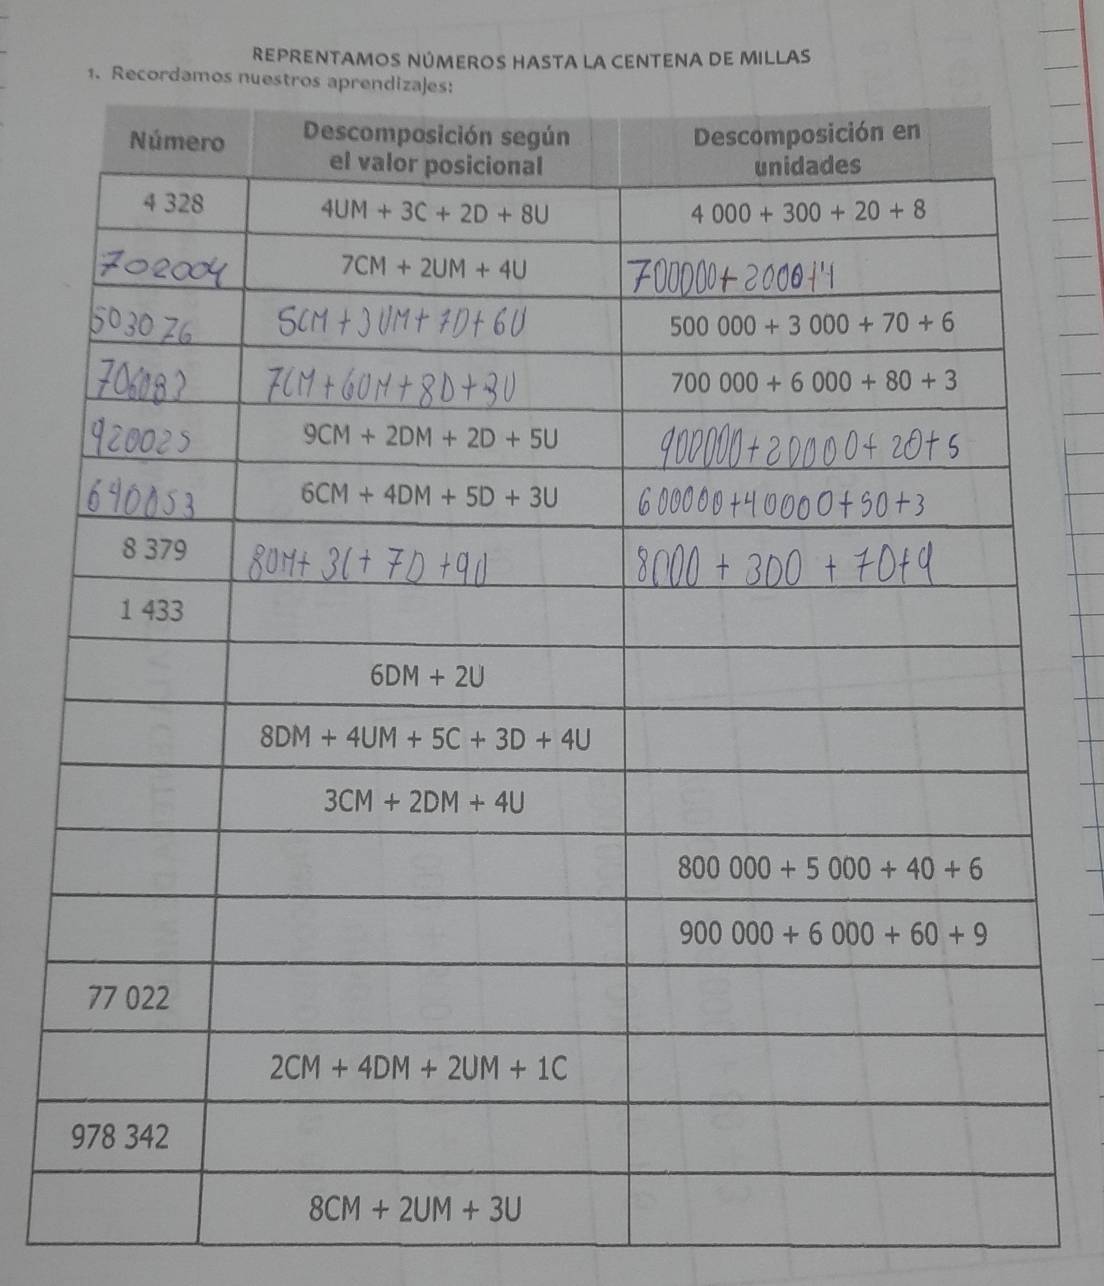 REPRENTAMOS NÚMEROS HASTA LA CENTENA DE MILLAS
1. Recordamos nuestros aprendizajes:
Número Descomposición según el valor posicional Descomposición en unidades
4 328 4UM + 3C + 2D + 8U 4 000 + 300 + 20 + 8
702004 7CM + 2UM + 4U 700000+ 2000+4
503076 5CM + 3UM + 7D + 6U 500 000 + 3 000 + 70 + 6
706083 7CM + 6UM + 8D + 3U 700 000 + 6 000 + 80 + 3
920025 9CM + 2DM + 2D + 5U 900000 + 20000 + 20 + 5
640053 6CM + 4DM + 5D + 3U 600000 + 40000 + 50 + 3
8 379 8UM + 3C + 7D + 9U 8000 + 300 + 70 + 9
1 433
6DM + 2U
8DM + 4UM + 5C + 3D + 4U
3CM + 2DM + 4U
800 000 + 5 000 + 40 + 6
900 000 + 6 000 + 60 + 9
77 022
2CM + 4DM + 2UM + 1C
978 342
8CM + 2UM + 3U